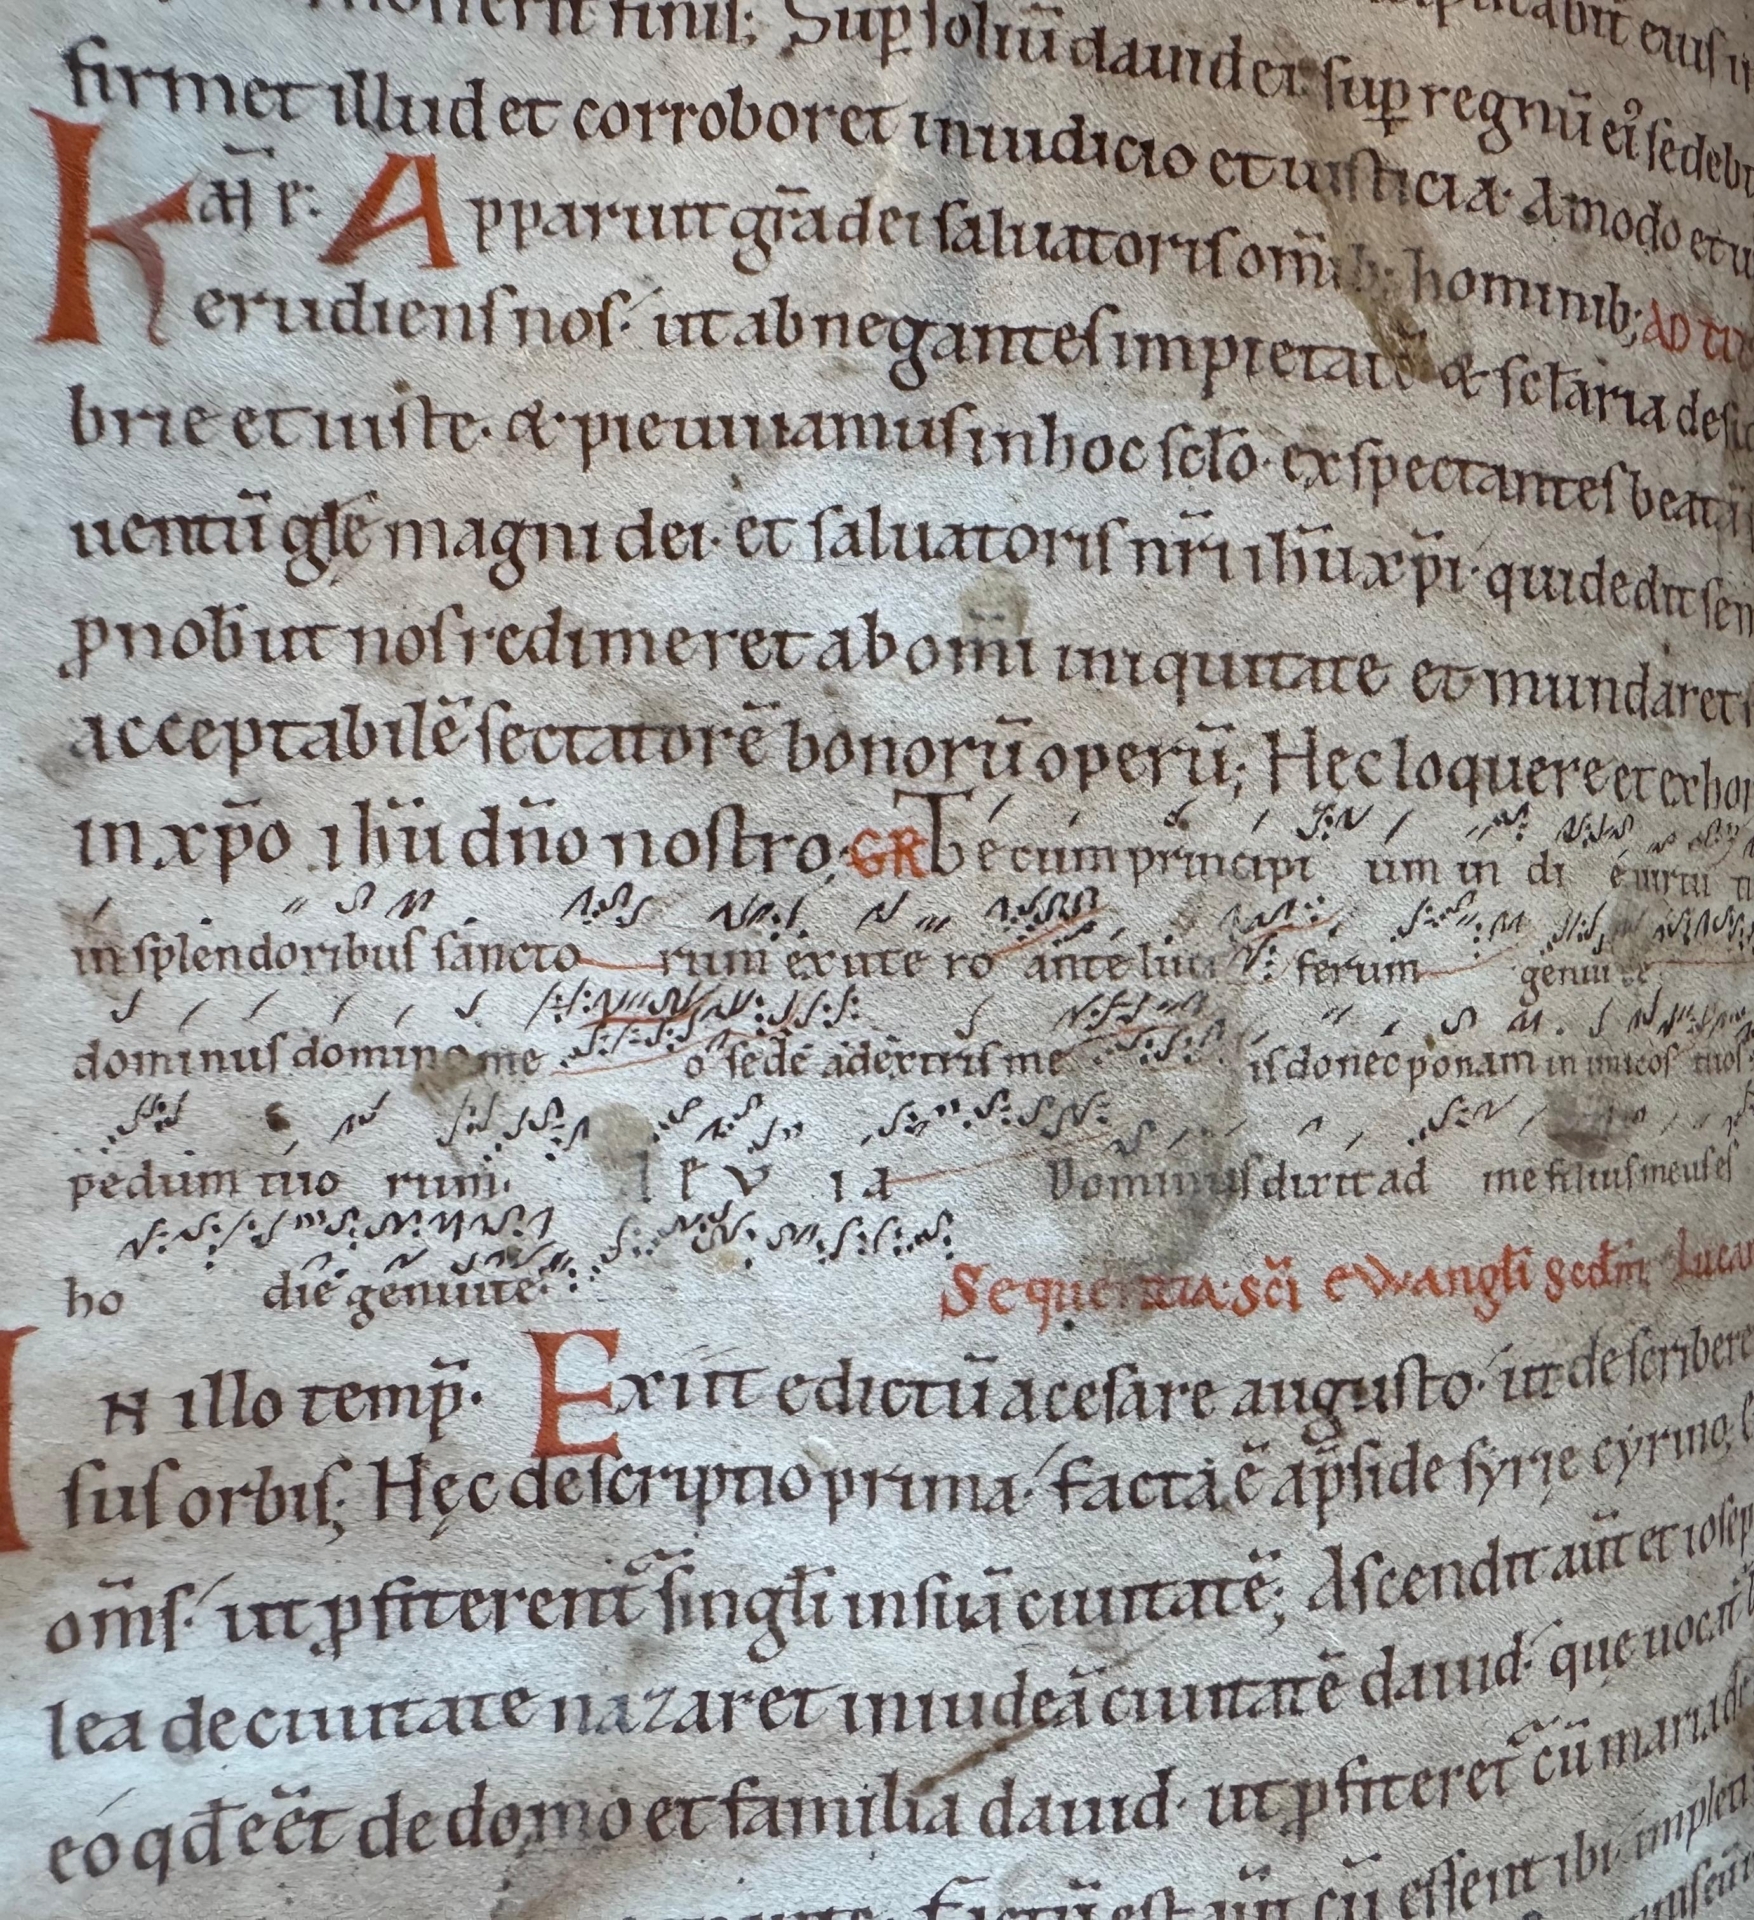 finiſ; Sup ſoliū dauid et ſup regnū eiꝰ ſedebi
firmet illud et corroboret in iudicio et iuſticia· Amodo et u
Kar̄ı r: Apparuit gr̄a dei ſaluatoriſ om̄ib; hominib; AD TIT
erudienſ noſ· ut abneganteſ impietatē & ſcl̄aria deſi
brie et iuſte· & pie uiuamuſ in hoc ſcl̄o· exſpectanteſ beatā
uentū gl̄e magni dei· et ſaluatoriſ nr̄i ih̄u xp̄i· qui dedit ſem
ꝓ nob̄ ut noſ redimeret ab om̄i iniquitate et mundaret
acceptabilē ſectatorē bonorū operū; Hec loquere et exhor
in xp̄o ih̄u dn̄o noſtro; GR Tecum principi um in di e uirtu ti
in ſplendoribuſ ſancto rum ex ute ro ante luci ferum genui te
dominuſ domino me o ſede a dextriſ me iſ donec ponam inimicoſ tuoſ
pedum tuo rum· l e v ia Dominuſ dixit ad me filiuſ meuſ eſ
ho die genui te·
Sequentia ſc̄i ewangl̄i ſecdm̄ Lucam
IN illo temp̄· Exiit edictū a ceſare auguſto· ut deſcribere
ſuſ orbiſ; Hęc deſcriptio prima· facta ē a p̄ſide ſyrię cyrino;
om̄ſ· ut ꝓfiterent᷑ ſingl̄i in ſuā ciuitatē; Aſcendit aūt et ioſep
lea de ciuitate nazaret in iudeā ciuitatē dauid· quę uocat᷑
eo qd̄ eēt de domo et familia dauid· ut ꝓfiteret᷑ cū maria de
Factū eſt aūt cū eſſent ibi· impleti